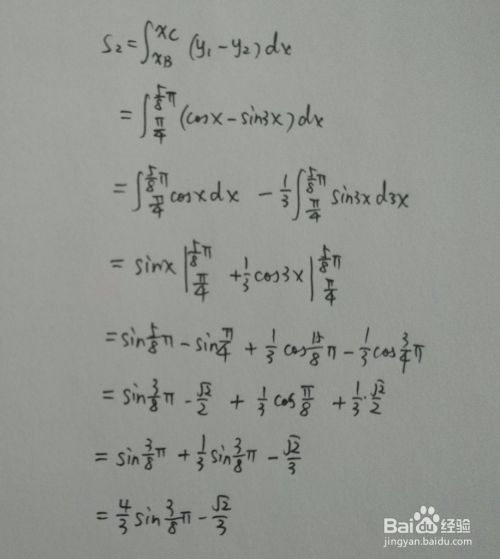 S₂ = ∫_{x_B}^{x_C} (y₁ - y₂) dx
= ∫_{π/4}^{5/8 π} (cosx - sin3x) dx
= ∫_{π/4}^{5/8 π} cosx dx - 1/3 ∫_{π/4}^{5/8 π} sin3x d3x
= sinx |_{π/4}^{5/8 π} + 1/3 cos3x |_{π/4}^{5/8 π}
= sin 5/8 π - sin π/4 + 1/3 cos 15/8 π - 1/3 cos 3/4 π
= sin 3/8 π - √2/2 + 1/3 cos π/8 + 1/3 · √2/2
= sin 3/8 π + 1/3 sin 3/8 π - √2/3
= 4/3 sin 3/8 π - √2/3
Baidu经验
jingyan.baidu.com